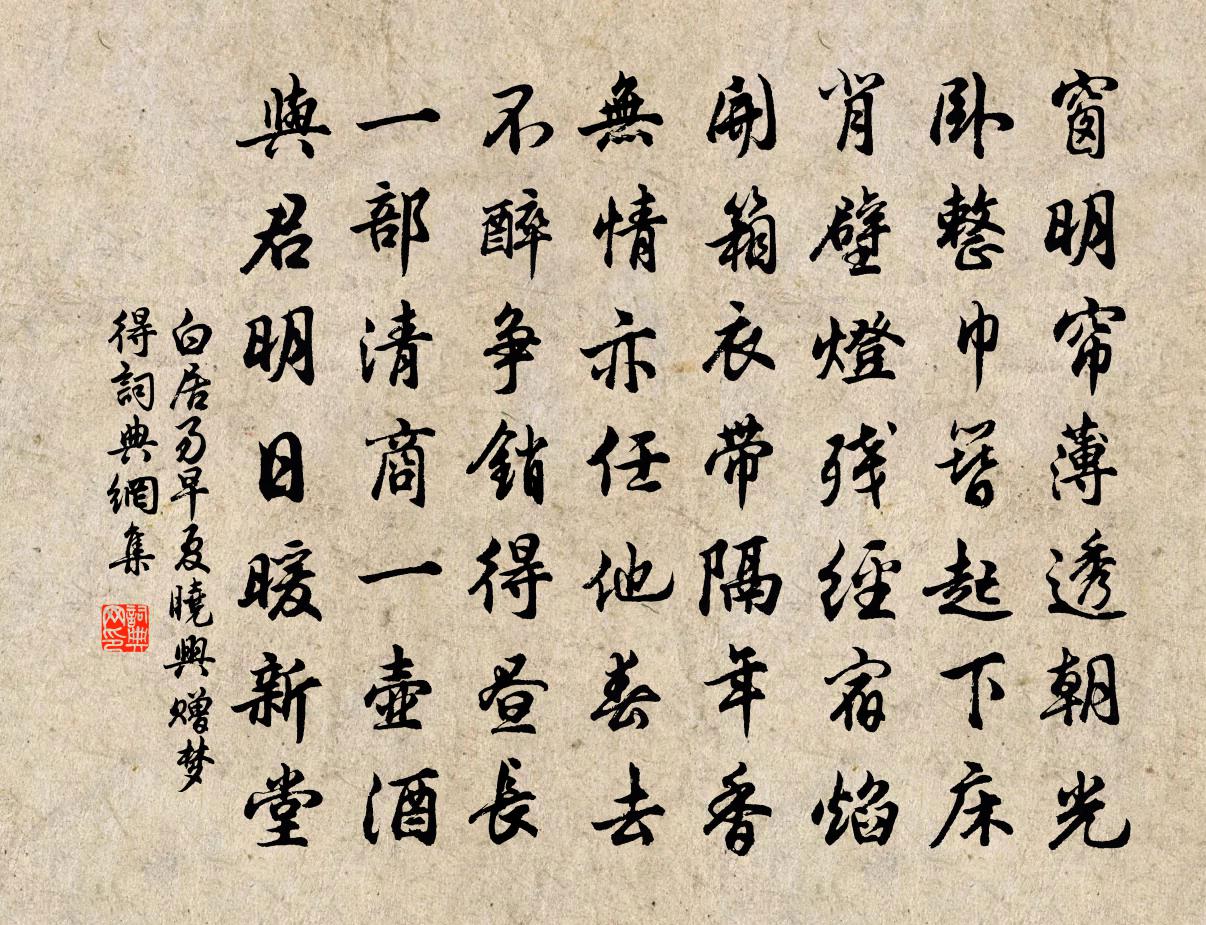 窗明帘薄透朝光
卧整巾簪起下床
背壁燈残經宿焰
開箱衣带隔年香
無情亦任他春去
不醉争銷得昼長
一部清商一壺酒
與君明日暖新堂
白居易早夏曉興赠梦
得詞典網集
詞典网印